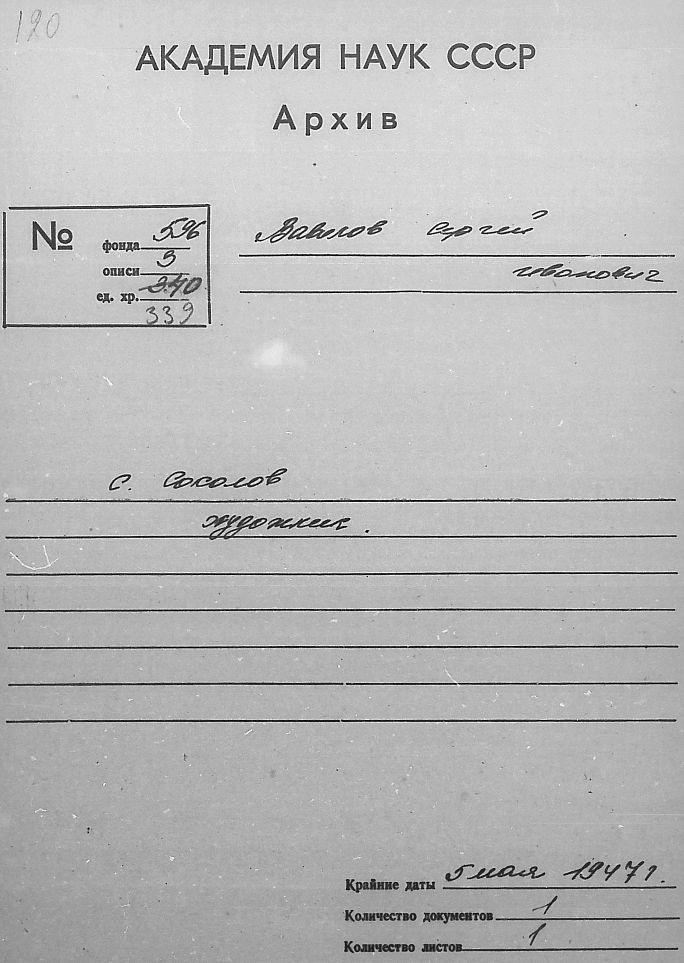 120
АКАДЕМИЯ НАУК СССР
Архив
№
фонда 596
описи 3
ед. хр. 340
339
Вавилов Сергей
Иванович
С. Соколов
художник.
Крайние даты 5 мая 1947 г.
Количество документов 1
Количество листов 1